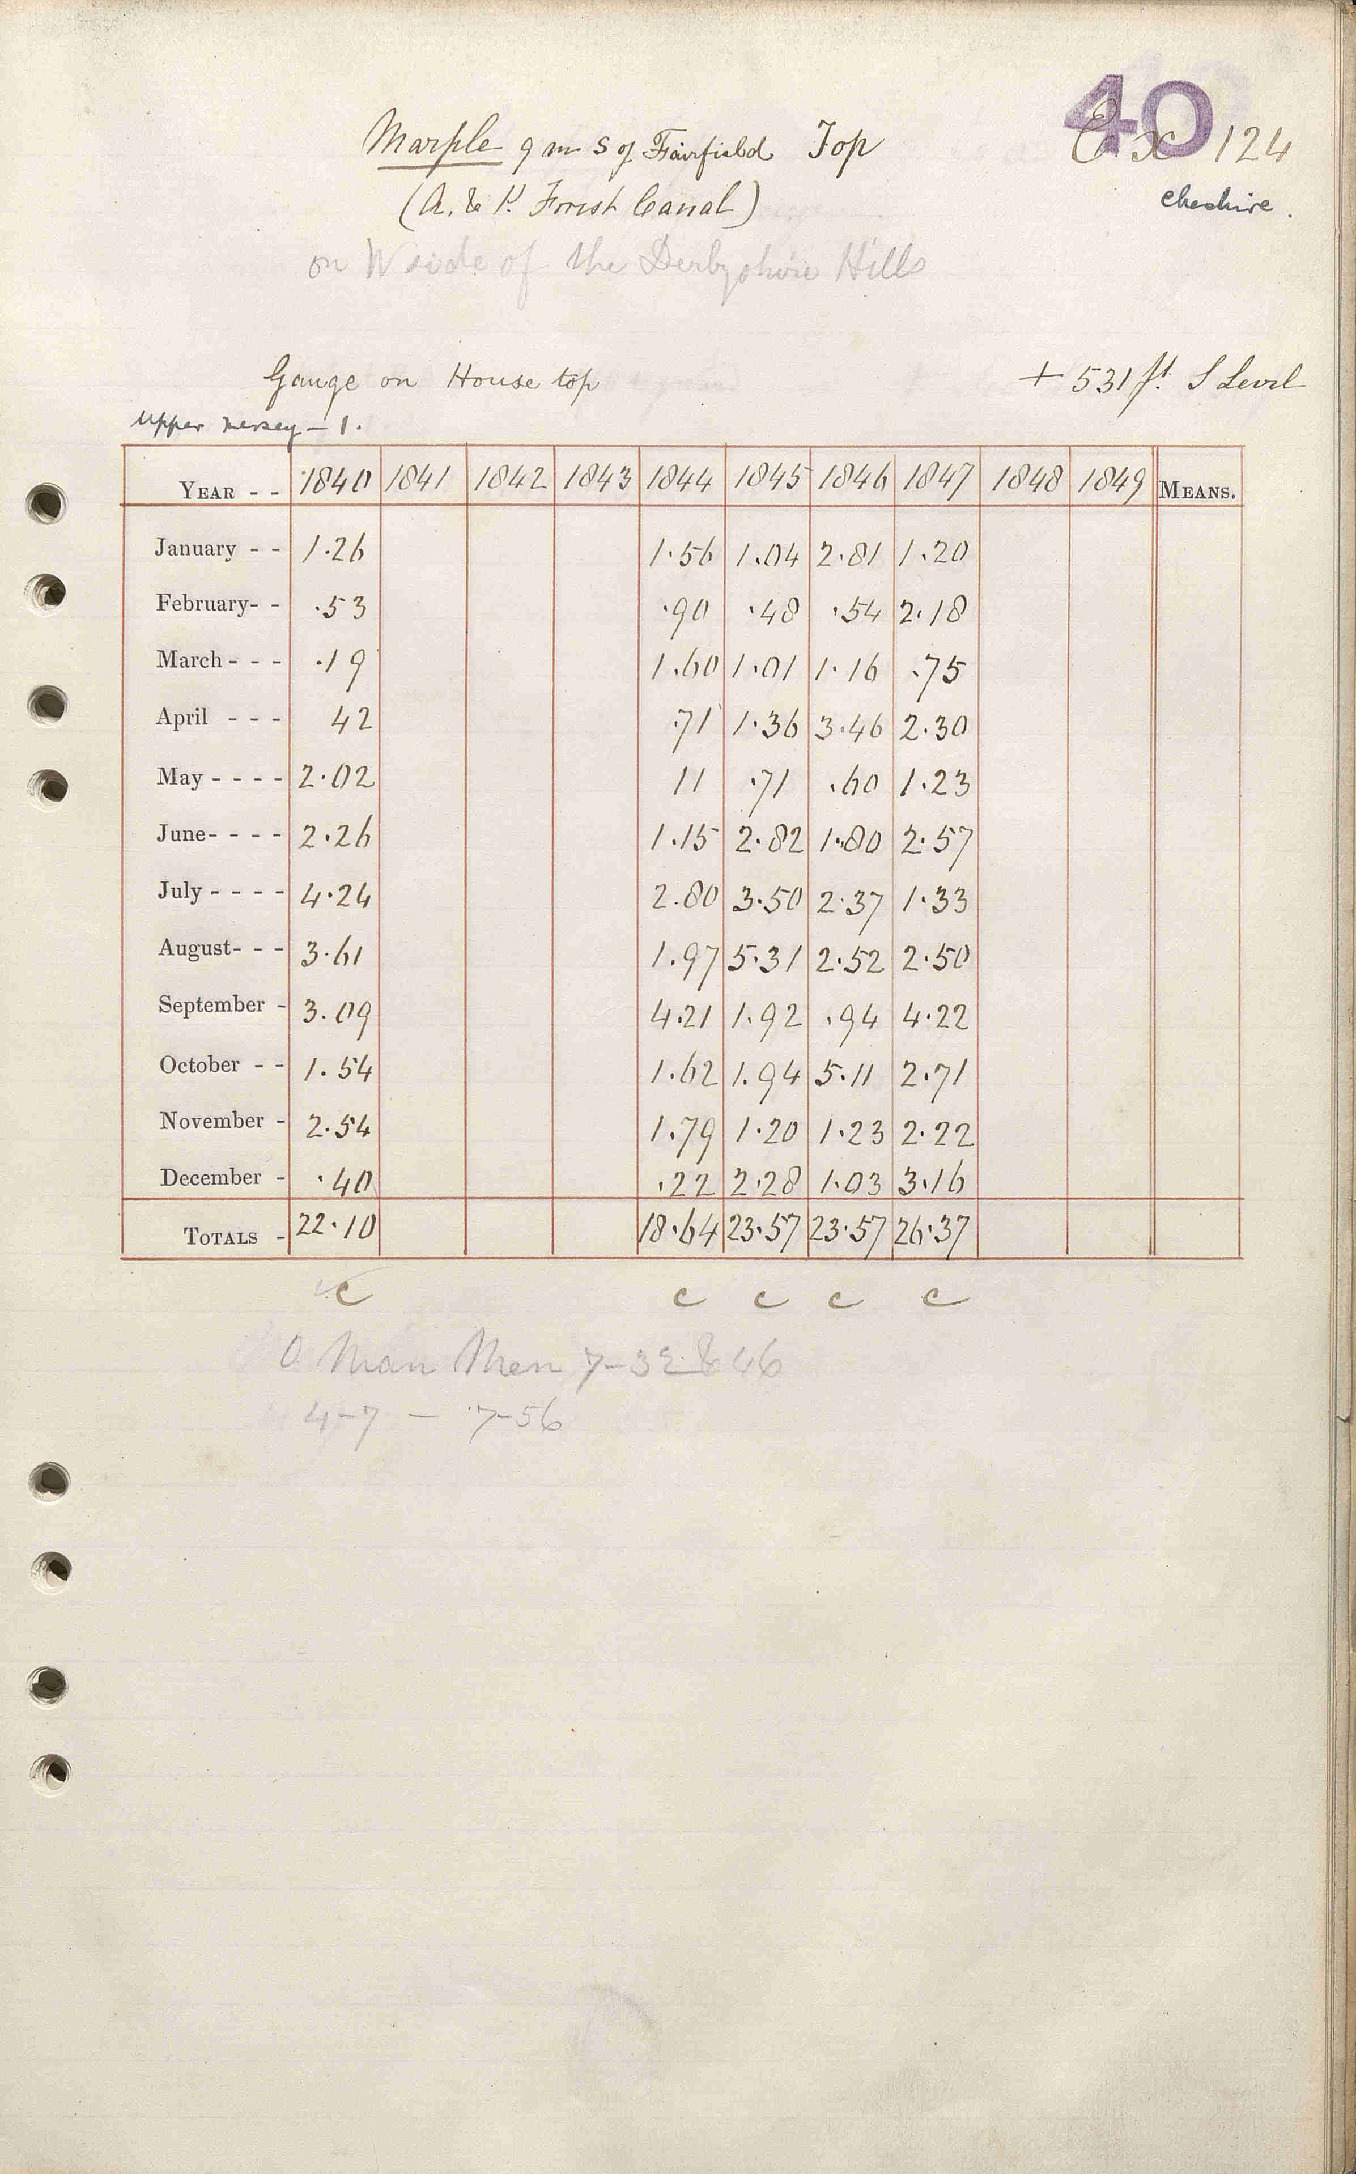 40
Marple 9 m S of Fairfield Top
Ex 124
(A. & P. Forest Canal)
Cheshire.
on W side of the Derbyshire Hills
Gauge on House top + 531 ft. S Level
Upper Mersey – 1.
YEAR - - 1840 1841 1842 1843 1844 1845 1846 1847 1848 1849 MEANS.
January - - 1.26 1.56 1.04 2.81 1.20
February- - .53 .90 .48 .54 2.18
March - - - .19 1.60 1.01 1.16 .75
April - - - 42 .71 1.36 3.46 2.30
May - - - - 2.02 11 .71 .60 1.23
June- - - - 2.26 1.15 2.82 1.80 2.57
July - - - - 4.24 2.80 3.50 2.37 1.33
August- - - 3.61 1.97 5.31 2.52 2.50
September - 3.09 4.21 1.92 .94 4.22
October - - 1.54 1.62 1.94 5.11 2.71
November - 2.54 1.79 1.20 1.23 2.22
December - .40 .22 2.28 1.03 3.16
TOTALS - 22.10 18.64 23.57 23.57 26.37
c c c c c
Man Mem 7–32 & 46
4–7 – 7–56